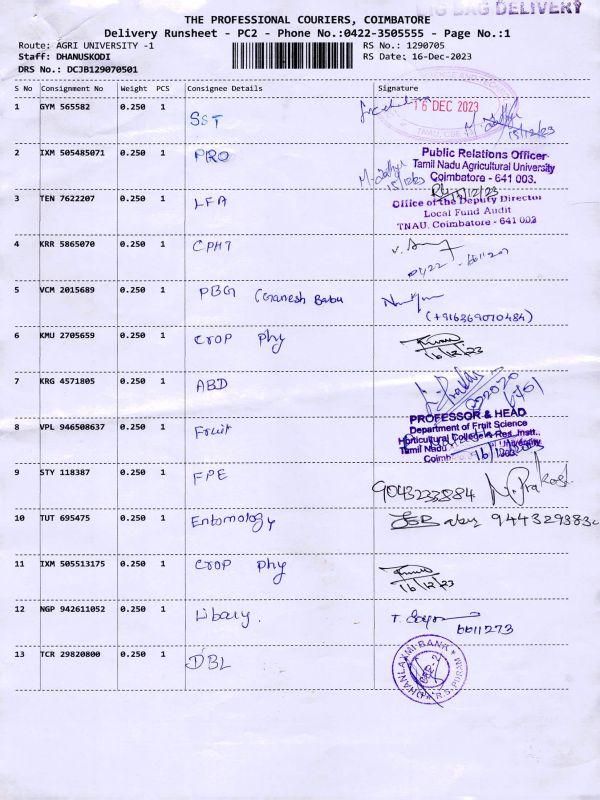 BIG BAG DELIVERY
THE PROFESSIONAL COURIERS, COIMBATORE
Delivery Runsheet - PC2 - Phone No.:0422-3505555 - Page No.:1
Route: AGRI UNIVERSITY -1
RS No.: 1290705
Staff: DHANUSKODI
RS Date: 16-Dec-2023
DRS No.: DCJB129070501
S No Consignment No Weight PCS Consignee Details Signature
1 GYM 565582 0.250 1 SST
16 DEC 2023
TNAU, CBE
15/12/23
2 IXM 505485071 0.250 1 PRO
Public Relations Officer
Tamil Nadu Agricultural University
Coimbatore - 641 003.
15/12/23
3 TEN 7622207 0.250 1 LFA
Office of the Deputy Director
Local Fund Audit
TNAU, Coimbatore - 641 003
4 KRR 5865070 0.250 1 CPHT
5 VCM 2015689 0.250 1 PBG (Ganesh Babu
(+916369070484)
6 KMU 2705659 0.250 1 crop phy
16/12/23
7 KRG 4571805 0.250 1 ABD
8 VPL 946508637 0.250 1 Fruit
PROFESSOR & HEAD
Department of Fruit Science
Horticultural College & Res. Instt.,
Tamil Nadu University
16/12/2023
9 STY 118387 0.250 1 FPE
9043233884 M. Prakash
10 TUT 695475 0.250 1 Entomology
11 IXM 505513175 0.250 1 crop phy
16/12/23
12 NGP 942611052 0.250 1 Libary.
6611273
13 TCR 29820800 0.250 1 DBL
DHANLAXMI BANK
R.S. PURAM